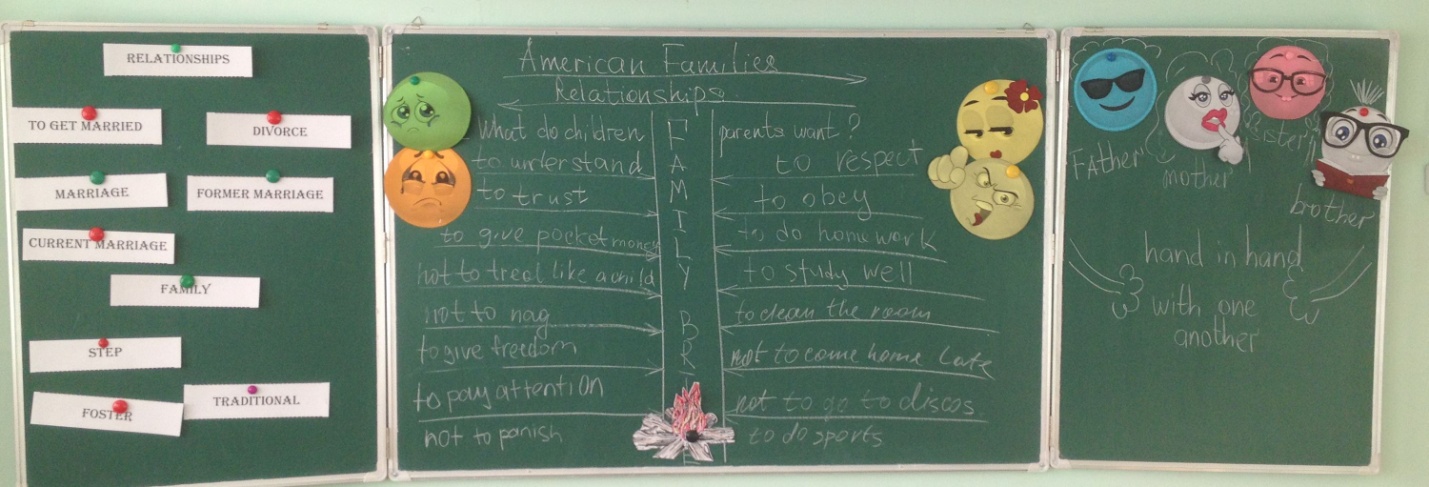 RELATIONSHIPS
TO GET MARRIED
DIVORCE
MARRIAGE
FORMER MARRIAGE
CURRENT MARRIAGE
FAMILY
STEP
FOSTER
TRADITIONAL
American Families
Relationships
What do children parents want?
to understand
to trust
to give pocket money
not to treat like a child
not to nag
to give freedom
to pay attention
not to panish
FAMILY
BRI
to respect
to obey
to do homework
to study well
to clean the room
not to come home late
not to go to discos
to do sports
Father
mother
sister
brother
hand in hand
with one
another